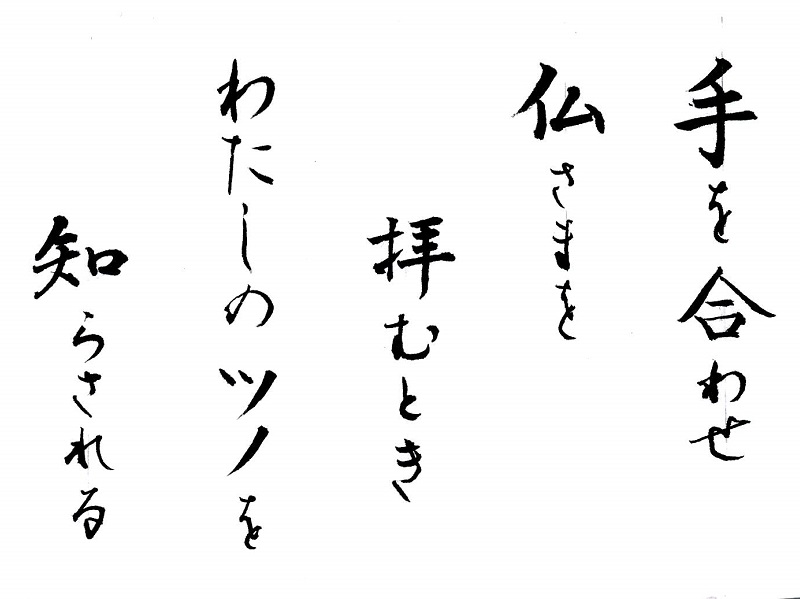 手を合わせ
仏さまを
拝むとき
わたしのツノを
知らされる